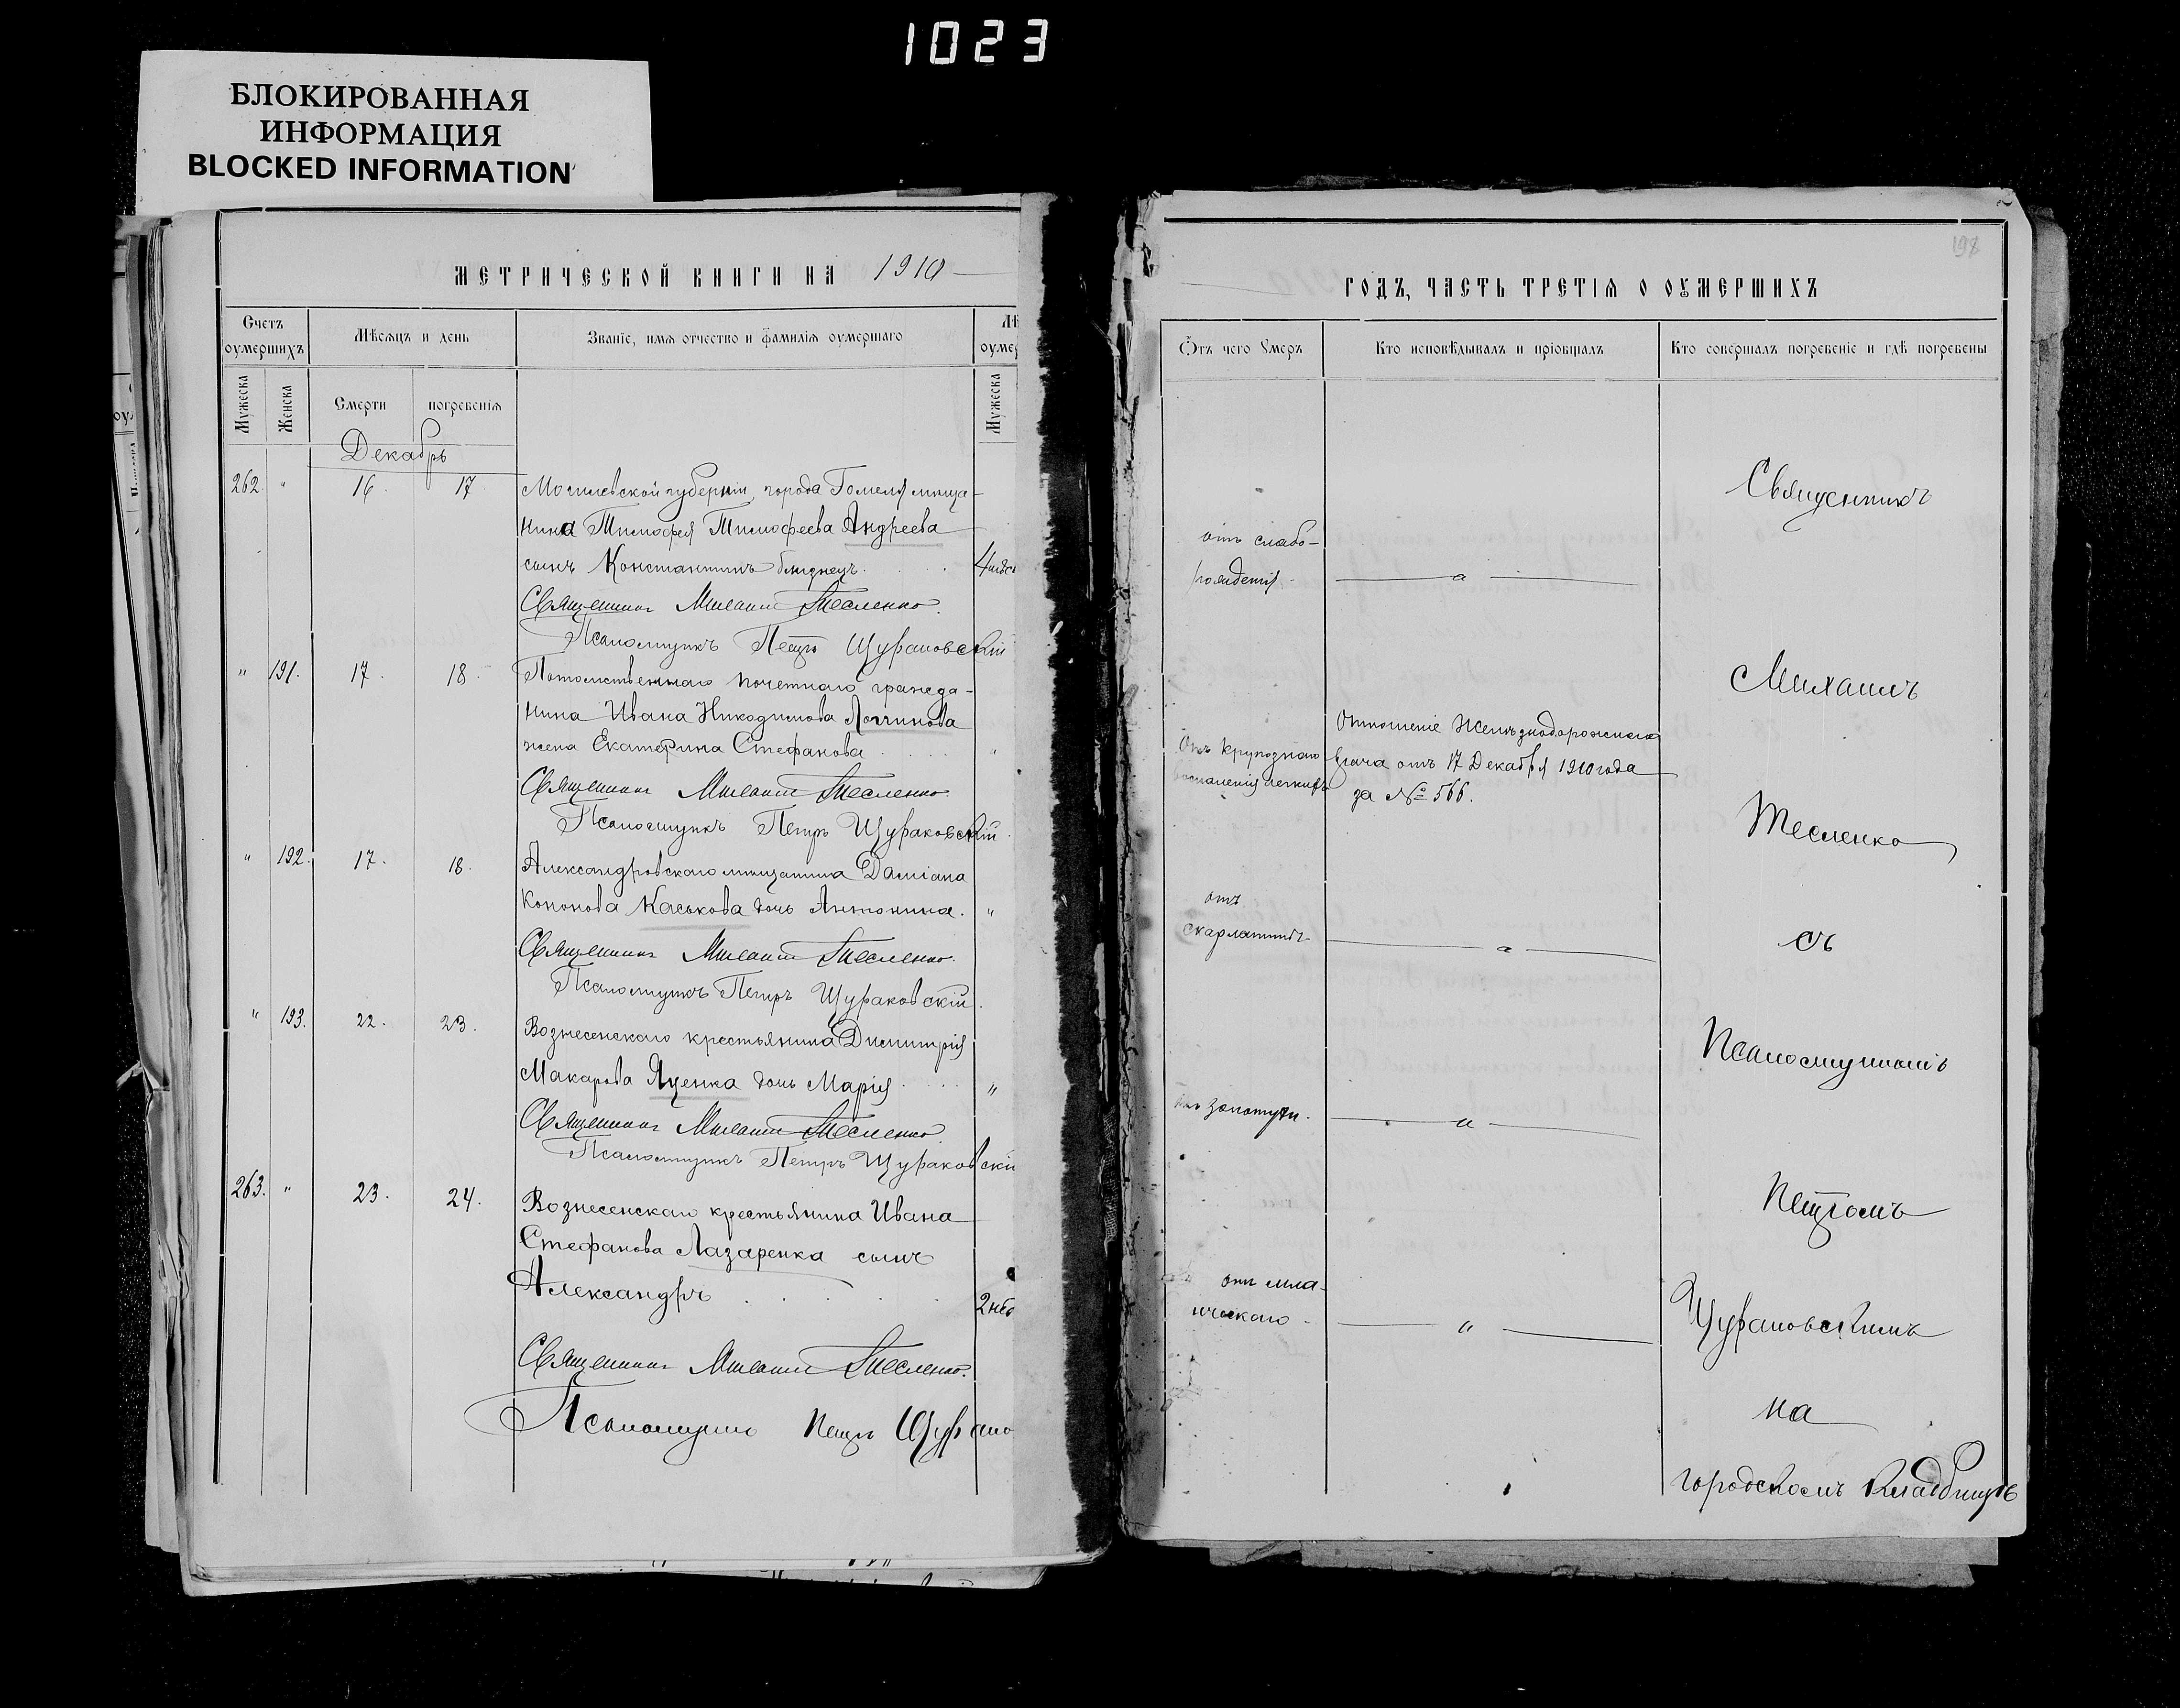 1023
БЛОКИРОВАННАЯ
ИНФОРМАЦИЯ
BLOCKED INFORMATION
МЕТРИЧЕСКОЙ КНИГИ НА 1910
Счетъ оумершихъ
Мѣсяцъ и день
Званіе, имя отчество и фамилія оумершаго
Лѣ
оумер
Мужеска
Женска
Смерти
погребенія
Мужеска
Декабрь
262. " 16. 17. Могилевской губерніи, города Гомеля мѣща-
нина Тимофея Тимофеева Андреева
сынъ Константинъ близнецъ. 4 мѣся
Священникъ Михаилъ Тесленко.
Псаломщикъ Петръ Щураковскій
" 191. 17. 18. Потомственнаго почетнаго гражда-
нина Ивана Никодимова Логгинова
жена Екатерина Стефанова "
Священникъ Михаилъ Тесленко.
Псаломщикъ Петръ Щураковскій.
" 192. 17. 18. Александровскаго мѣщанина Даміана
Кононова Каськова дочь Антонина. "
Священникъ Михаилъ Тесленко.
Псаломщикъ Петръ Щураковскій.
" 193. 22. 23. Вознесенскаго крестьянина Димитрія
Макарова Яценка дочь Марія "
Священникъ Михаилъ Тесленко.
Псаломщикъ Петръ Щураковскій
263. " 23. 24. Вознесенскаго крестьянина Ивана
Стефанова Лазаренка сынъ
Александръ 2 нед
Священникъ Михаилъ Тесленко.
Псаломщикъ Петръ Щурако
198
ГОДЪ, ЧАСТЬ ТРЕТІЯ О ОУМЕРШИХЪ
Отъ чего Умеръ
Кто исповѣдывалъ и пріобщалъ
Кто совершалъ погребеніе и гдѣ погребены
отъ слабо-
рожденія.
Отъ крупознаго
воспаленія легкихъ
Отношеніе Желѣзнодорожнаго
врача отъ 17 Декабря 1910 года
за № 566.
отъ
скарлатины
отъ золотухи.
отъ мла-
ическаго
Священникъ
Михаилъ
Тесленко
съ
Псаломщикомъ
Петромъ
Щураковскимъ
на
городскомъ кладбищѣ